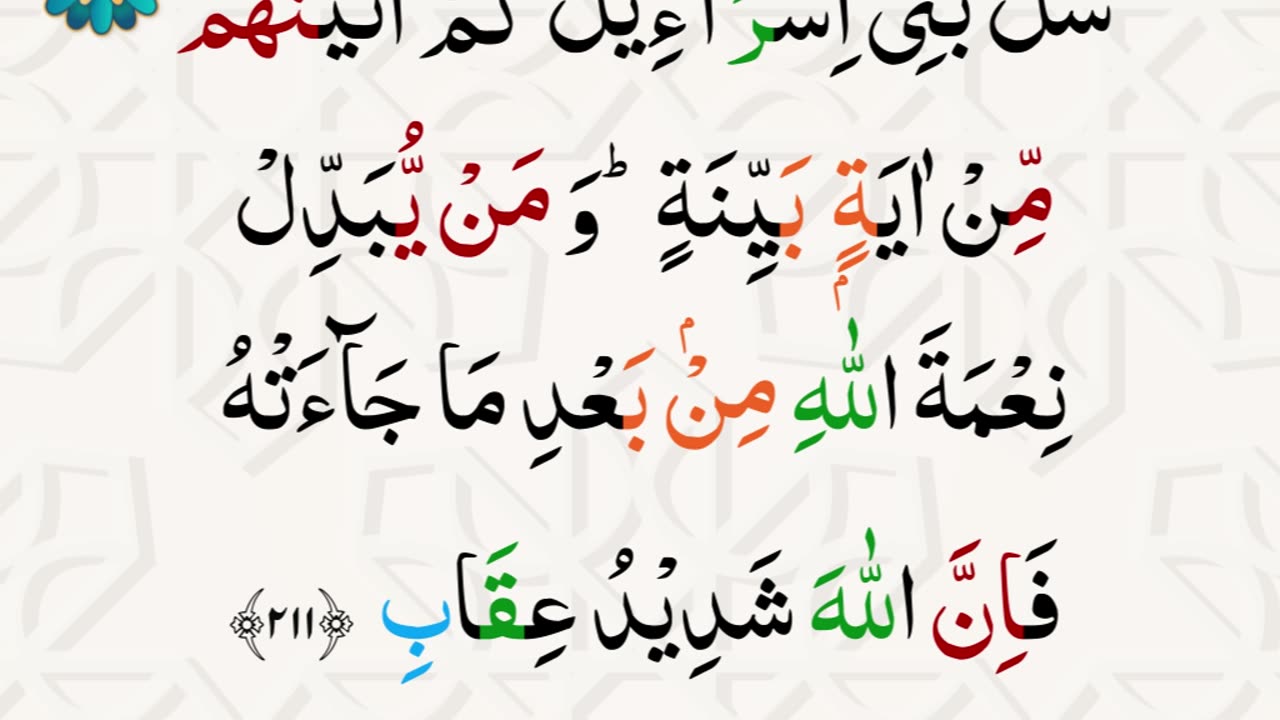 سل بنِی اِسراءِیل کم اتینهم
مِّنْ اٰیَةٍۭ بَیِّنَةٍ ؕ وَ مَنْ یُّبَدِّلْ
نِعْمَةَ اللّٰهِ مِنْۢ بَعْدِ مَا جَآءَتْهُ
فَاِنَّ اللّٰهَ شَدِیْدُ عِقَابِ ﴿۲۱۱﴾